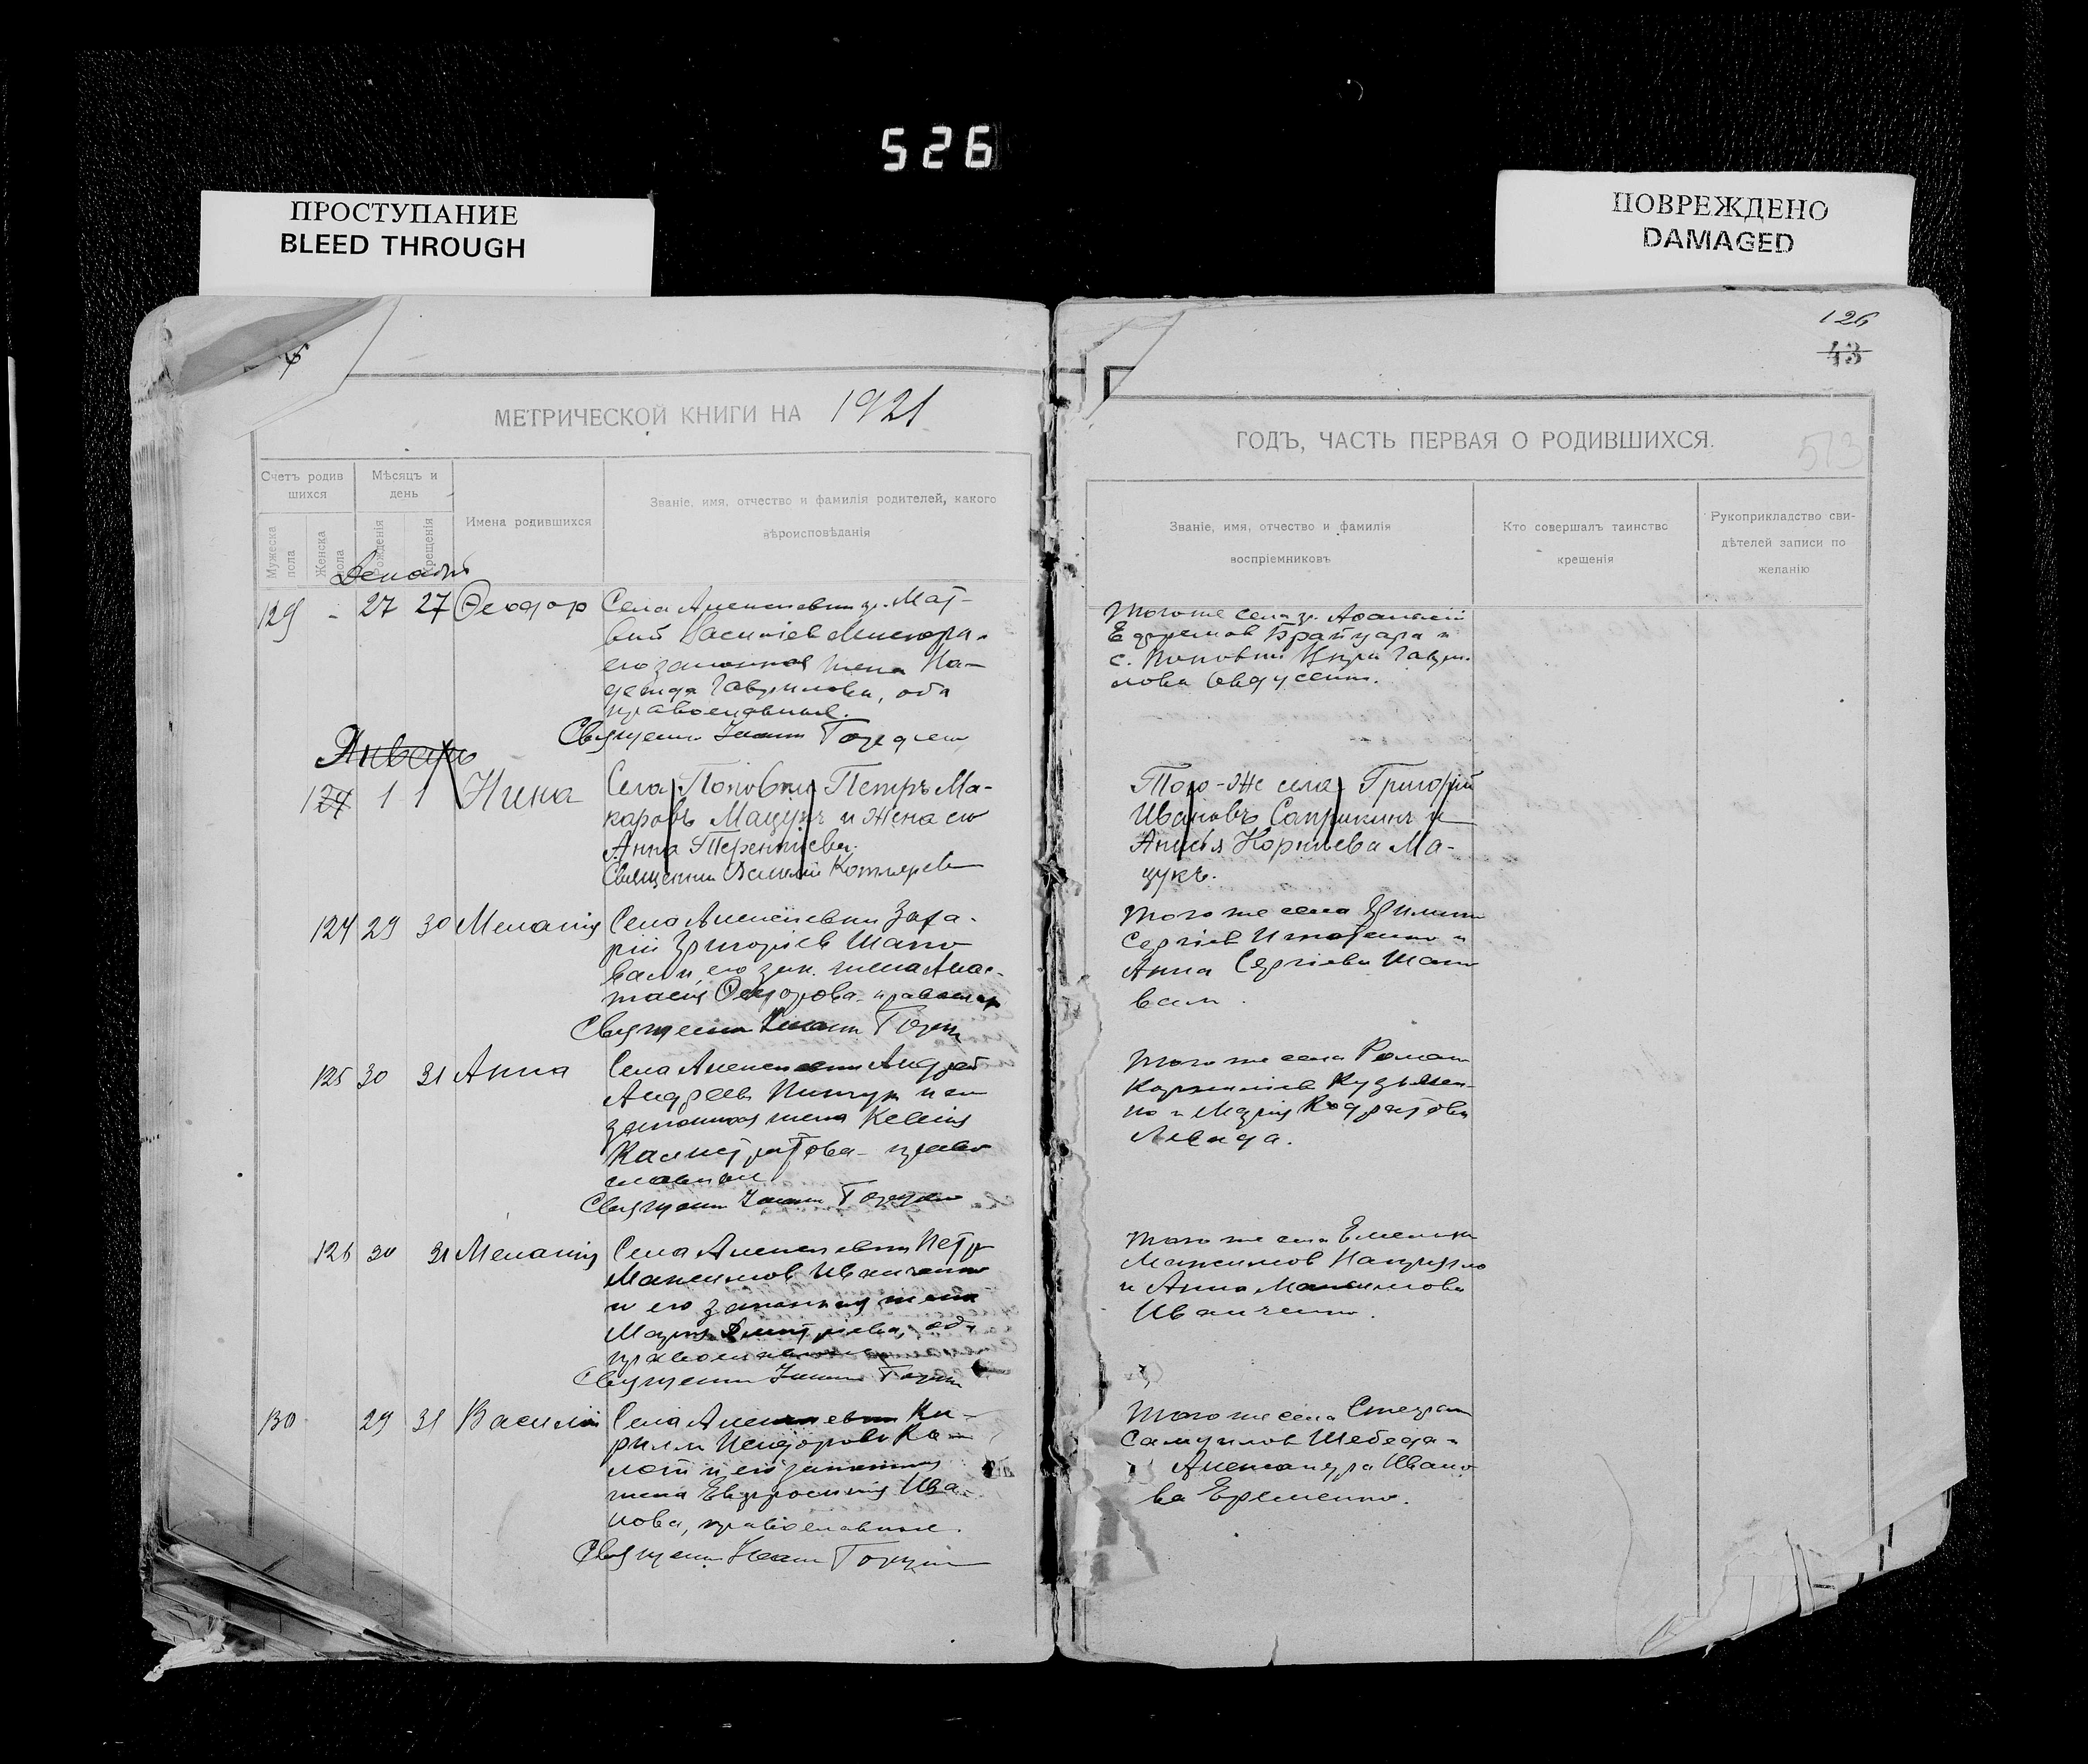 526
ПРОСТУПАНИЕ
BLEED THROUGH
ПОВРЕЖДЕНО
DAMAGED
126
43
МЕТРИЧЕСКОЙ КНИГИ НА 1921
ГОДЪ, ЧАСТЬ ПЕРВАЯ О РОДИВШИХСЯ.
513
Счетъ родив
шихся
Мѣсяцъ и
день
Имена родившихся
Званіе, имя, отчество и фамилія родителей, какого
вѣроисповѣданія
Мужеска
пола
Женска
пола
Рожденія
Крещенія
Званіе, имя, отчество и фамилія
воспріемниковъ
Кто совершалъ таинство
крещенія
Рукоприкладство сви-
дѣтелей записи по
желанію
Декабрь
129 - 27 27 Ѳеодор
Села Алексеевки гр. Мат-
вий Васильев
его законная жена На-
дежда Гавриилова, оба
православные.
Священник Иоанн
Того же села гр. Афанасий
Ефремов Брайчара и
с. Поповки Гаври-
лова
Январь
124 1 1 Нина
Села Поповки Петръ Ма-
каровъ Мацукъ и жена его
Анна Терентіева.
Священник Василий Котляревъ
Того-же села Григорій
Ивановъ Саприкинъ и
Корніева Ма-
цукъ.
124 29 30 Мелания
Села Алексеевки Заха-
рий Григориев Шапо
вал и его зак. жена Анас-
тасия Феодорова - православ
Священник Иоанн
Того же села
Сергиев Игнатенко и
Анна Сергиева Шапо
вал.
125 30 31 Анна
Села Алексеевки Андрей
Андреев и его
законная жена Ксения
Калистратова - право
славные
Священник Иоанн
Того же села Роман
Корнилиев Кузьмен-
ко и Мария Кодратова
126 30 31 Мелания
Села Алексеевки Петр
Максимов Иванченко
и его законная жена
Мария Дмитриева, оба
православные
Священник Иоанн
Того же села
Максимов
и Анна Максимова
Иванченко.
130 29 31 Василий
Села Алексеевки Ки-
рилл
и его законная
жена Евфросиния Ива-
нова, православные.
Священник Иоанн
Того же села Стефан
Самуилов Шебеда и
Александра Ивано
ва Еременко.